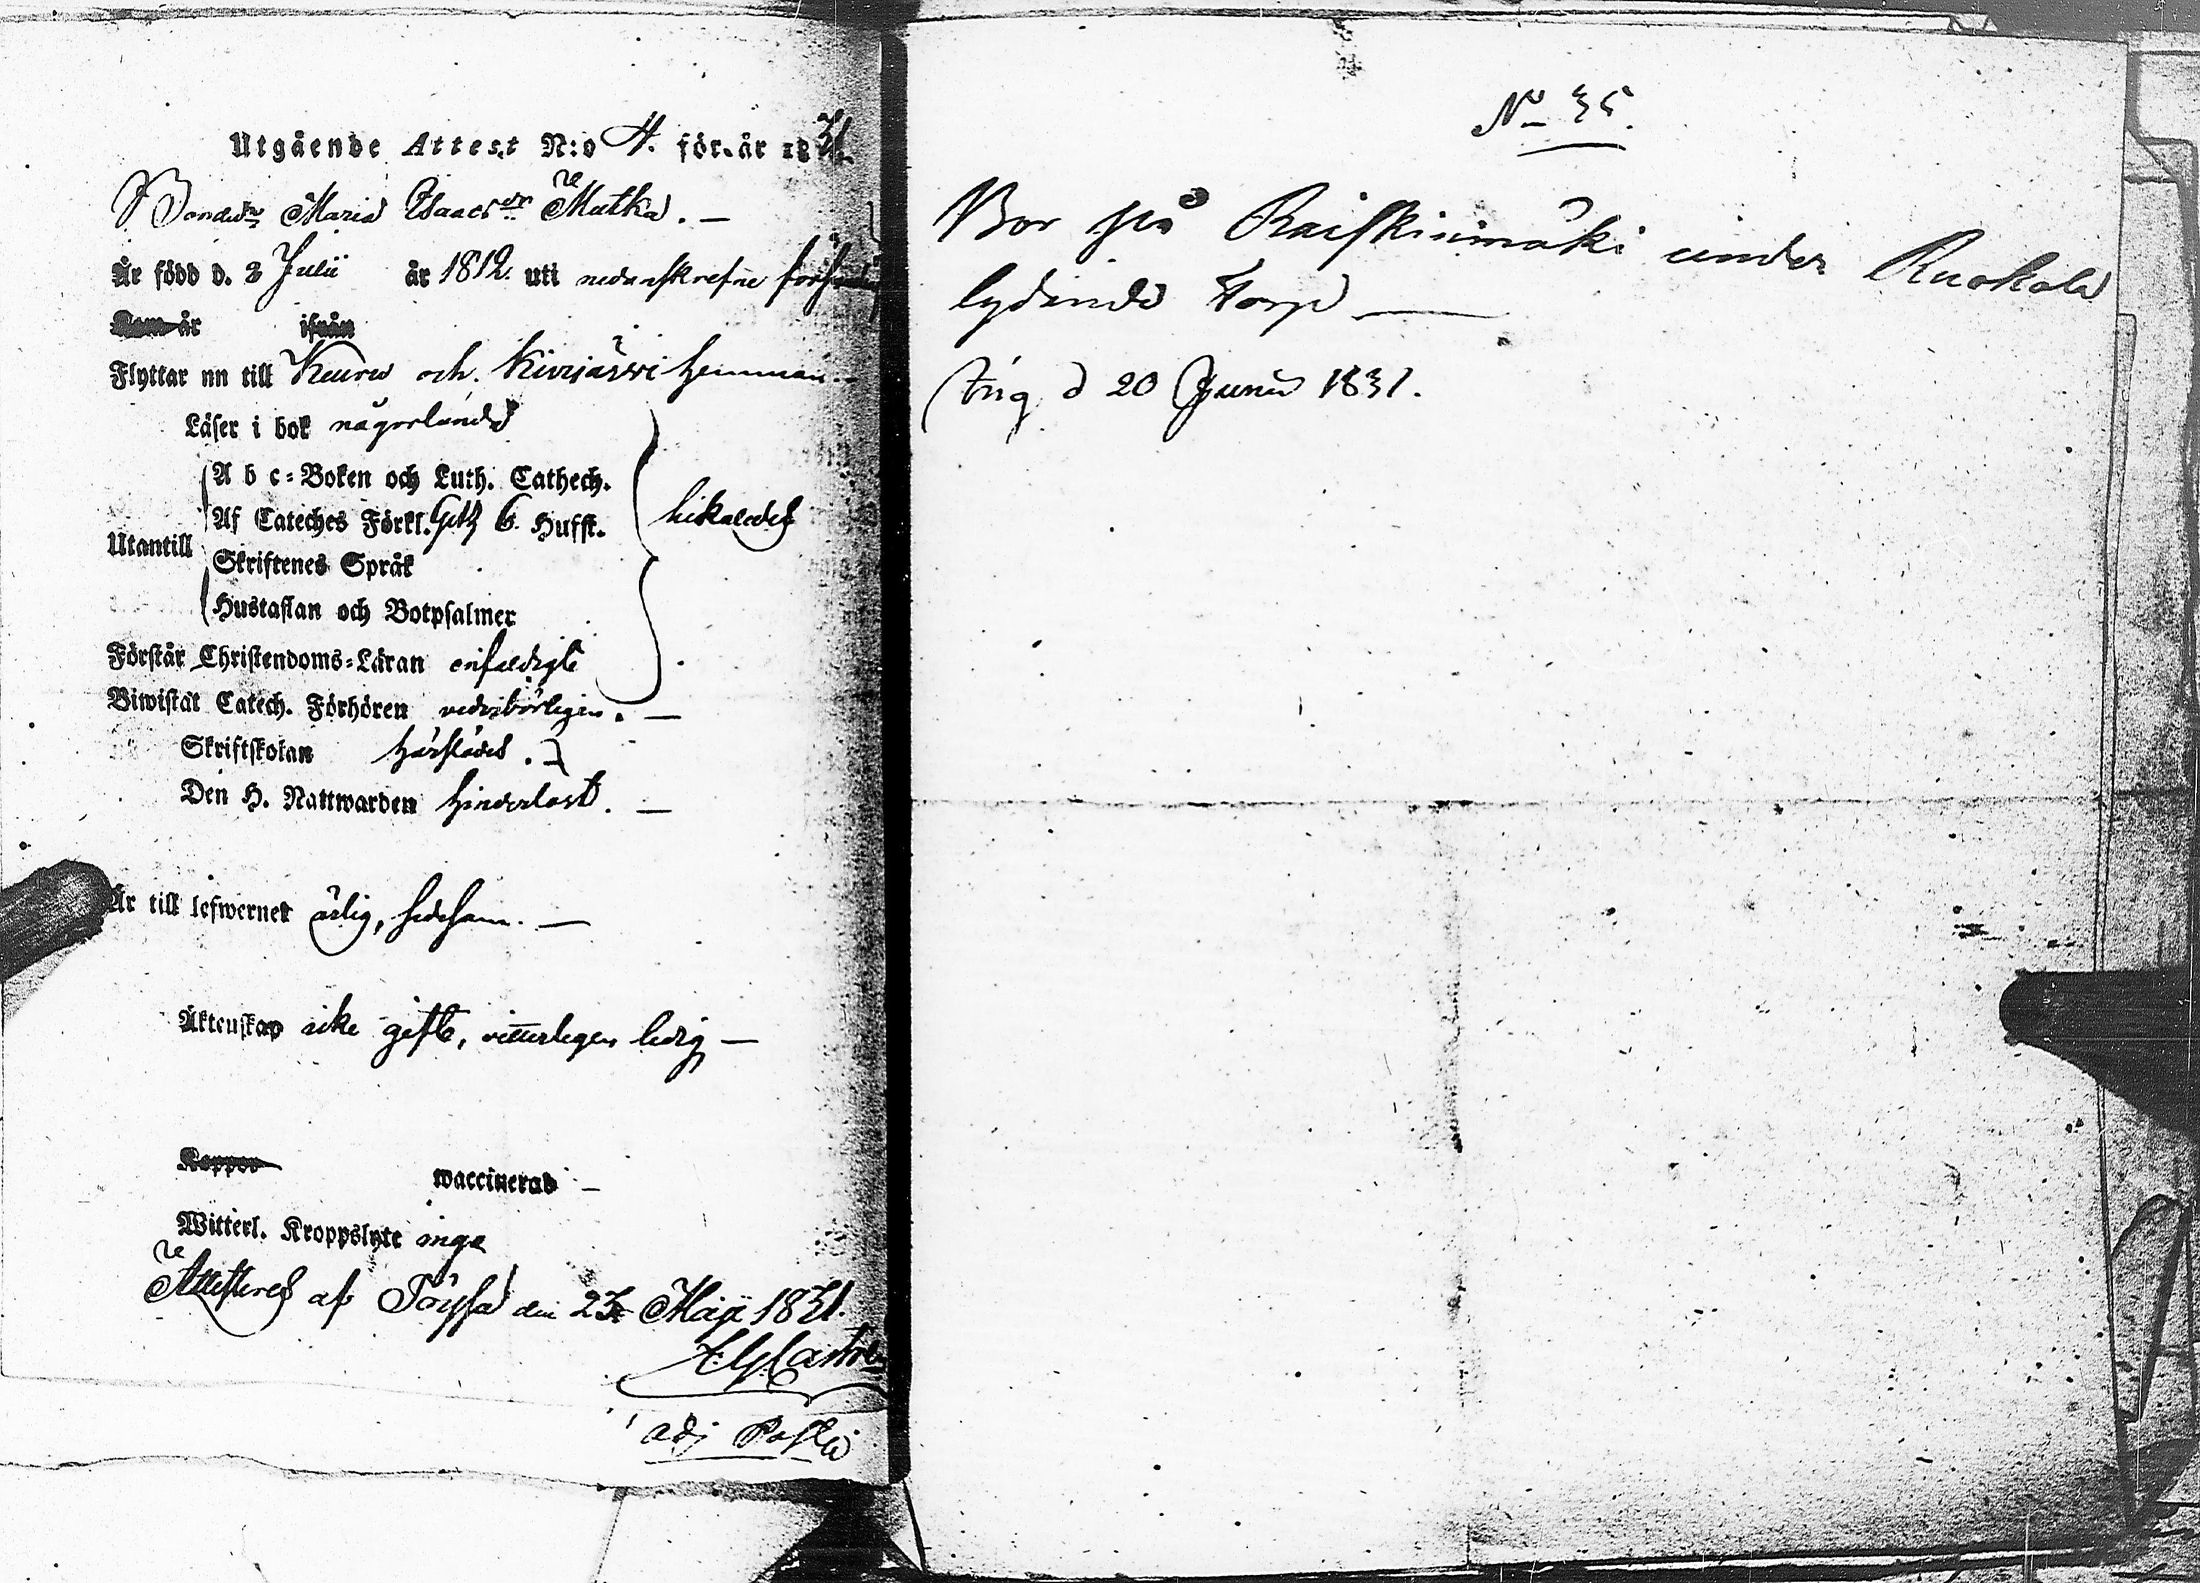 Utgående Attest N:o 4. för år 1831.
Bondedr Maria Isaacsdr Mutka. —
Är född d. 3 Julii år 1812. uti nedanskrefne församl
Kom år ifrån
Flyttar nu till Kuurtu och Kivijärvi hemman.
Läser i bok någorlunda
A b c-Boken och Luth. Cathech.
Af Cateches Förkl. Getz 6. Hufst. likaledes
Utantill
Skriftenes Språk
Hustaflan och Botpsalmer
Förstår Christendoms-Läran enfaldigt
Biwistat Catech. Förhören vederbörligen. —
Skriftskolan härstädes.
Den H. Nattwarden hinderlöst. —
Är till lefwernet ärlig, sedesam. —
Äktenskap icke gift, vitterligen ledig —
Koppor waccinerad —
Witterl. Kroppslyte inga
Attesteras af Töysä den 23 Maji 1831.
adj Past
No 35.
Bor på Raiskinmäki under Ruokola
lydande Torp —
d 20 Junii 1831.